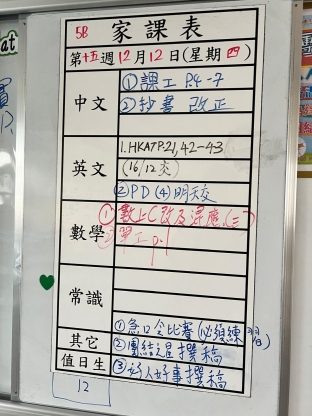 5B 家課表
第十五週12月12日(星期四)
中文
①課工 P.4-7
②抄書 改正
英文
1. HKATP.21, 42-43
(16/12交)
②PD (4) 明天交
數學
①數上C改及
②學工 p.1
常識
其它
①急口令比賽 (必須練習)
②團結之星撰稿
值日生
③好人好事撰稿
12